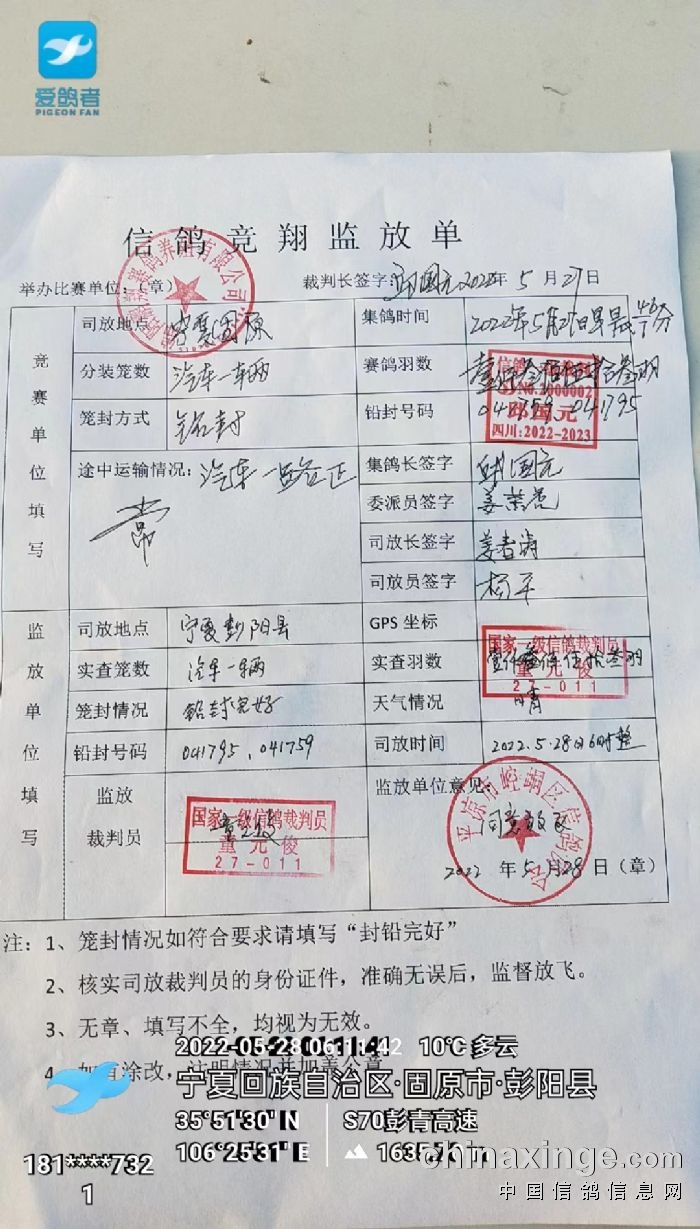 爱鸽者
PIGEON FAN
信鸽竞翔监放单
举办比赛单位:(章) 裁判长签字: 邱国元 2022年5月27日
竞赛单位填写
司放地点 宁夏固原 集鸽时间 2022年5月27日
分装笼数 汽车一辆 赛鸽羽数
笼封方式 铅封 铅封号码 041759 041795
邱国元
四川:2022-2023
途中运输情况: 汽车一路正常
集鸽长签字 邱国元
委派员签字
司放长签字
司放员签字 杨平
监放单位填写
司放地点 宁夏彭阳县 GPS 坐标
实查笼数 汽车一辆 实查羽数
国家一级信鸽裁判员
童元俊
27-011
笼封情况 铅封完好 天气情况 晴
铅封号码 041795、041759 司放时间 2022.5.28日6时整
监放裁判员
国家一级信鸽裁判员
童元俊
27-011
监放单位意见:
同意放飞
平凉市崆峒区信鸽协会
2022年5月28日(章)
注:1、笼封情况如符合要求请填写“封铅完好”
2、核实司放裁判员的身份证件,准确无误后,监督放飞。
3、无章、填写不全,均视为无效。
4、如有涂改,注明情况并加盖公章
2022-05-28 06:11:42 10℃ 多云
宁夏回族自治区·固原市·彭阳县
35°51'30" N S70彭青高速
106°25'31" E
181****732
1
chinaxinge.com
中国信鸽信息网